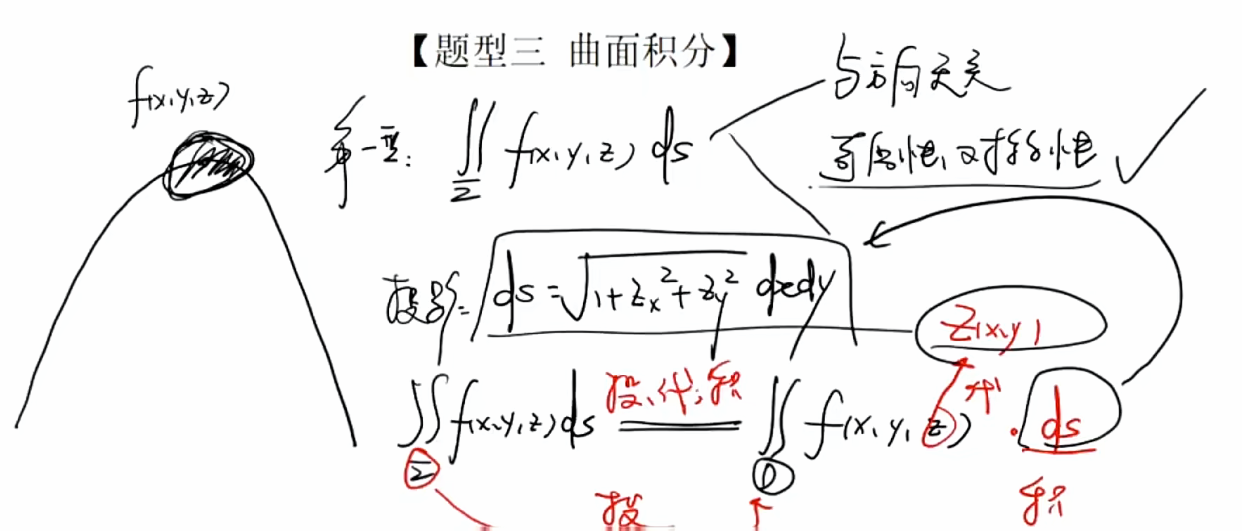 【题型三 曲面积分】
与方向无关
f(x,y,z)
第一型: ∬Σ f(x,y,z) ds
奇偶性、对称性 ✓
投影: ds=√1+Zx²+Zy² dxdy
Z(x,y)
∬Σ f(x,y,z)ds 投、代、积 ∬D f(x,y,z) 代 · ds
投 积